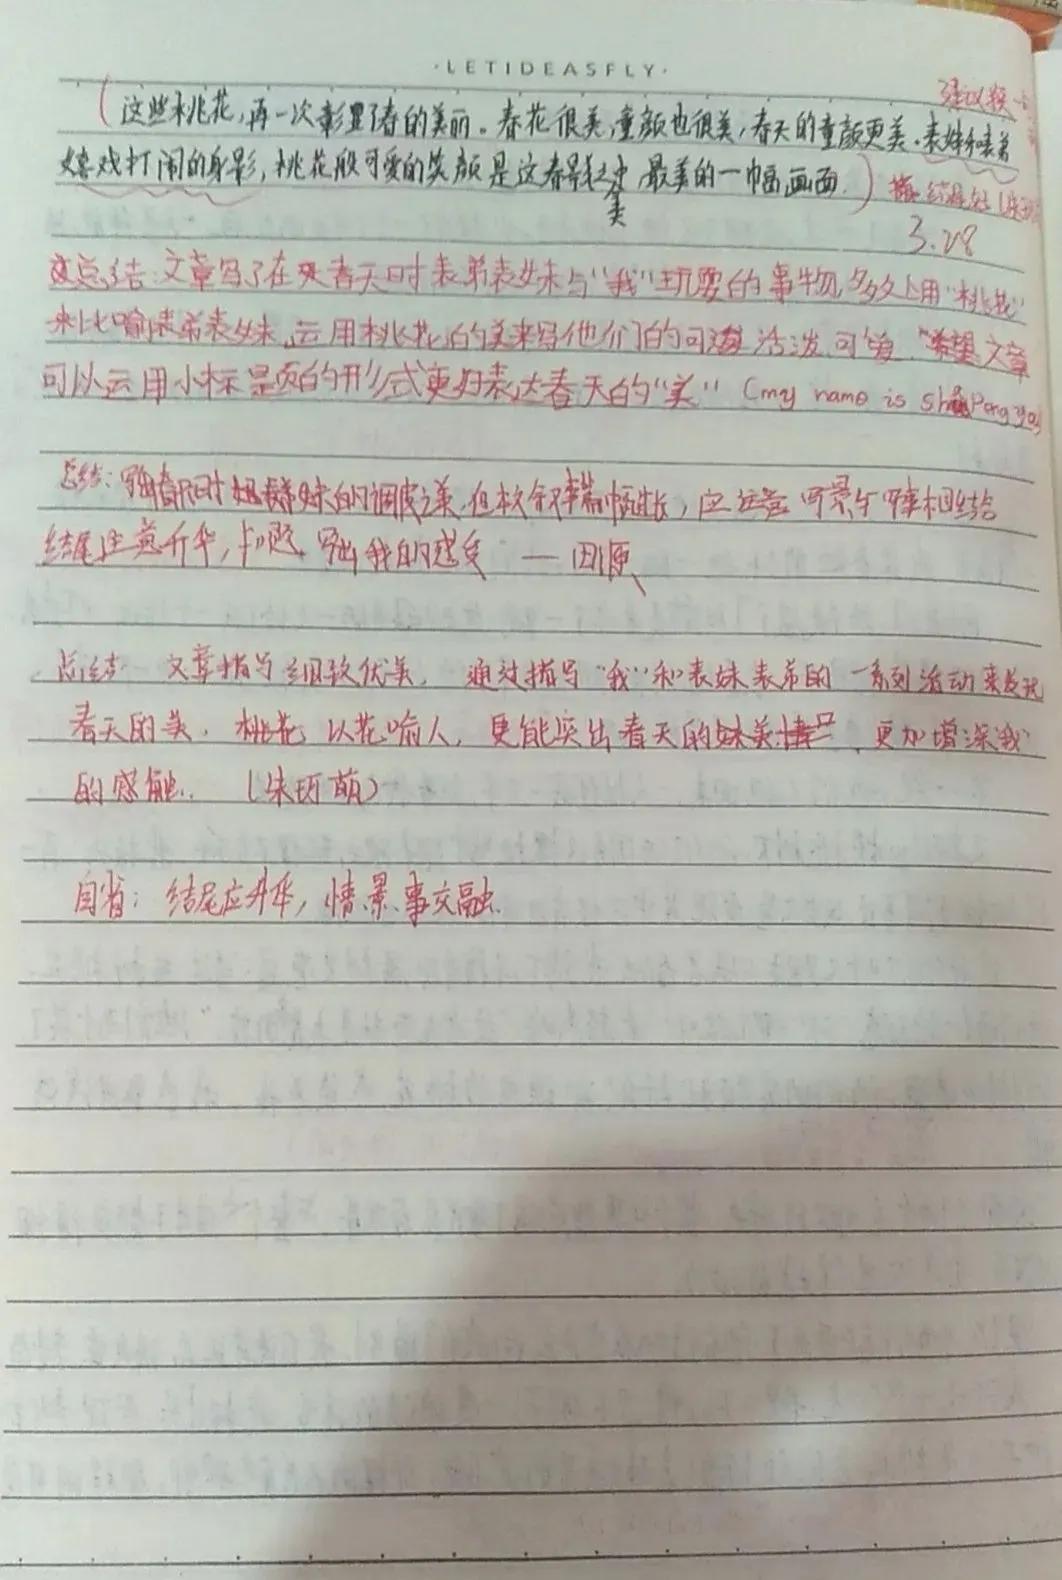 ·LETIDEASFLY·
建议换
(这些桃花,再一次彰显了春的美丽。春花很美,童颜也很美,春天的童颜更美。表妹和表弟
嬉戏打闹的身影,桃花般可爱的笑颜是这春景之中最美的一幅画面。)
美
结尾处
3.28
总结:文章写了在春天时表弟表妹与“我”玩耍的事物,多处用“桃花”
来比喻表弟表妹,运用桃花的美来写他们的活泼可爱,“希望文章
可以运用小标题的形式更好表达春天的“美” (my name is
总结: 表弟妹的调皮之美,但本 幅过长,应 景与 事相结合
结尾注意升华,点题,写出我的感受 —
总结:文章描写细致优美,通过描写“我”和表妹表弟的一系列活动来发现
春天的美,桃花,以花喻人,更能突出春天的 美 ,更加增深“我”
的感触. (朱珂萌)
自省:结尾应升华,情、景、事交融.